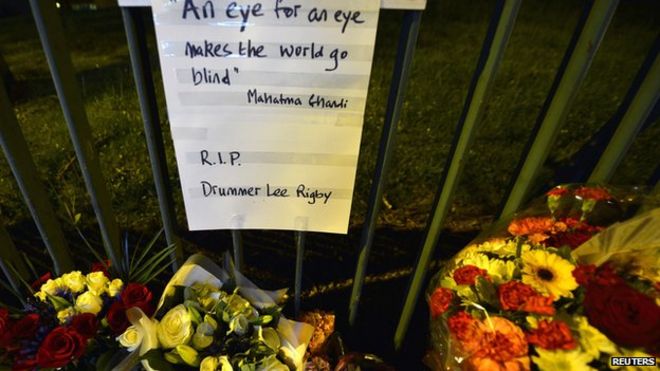 "An eye for an eye
makes the world go
blind"
Mahatma Ghandi
R.I.P.
Drummer Lee Rigby
REUTERS